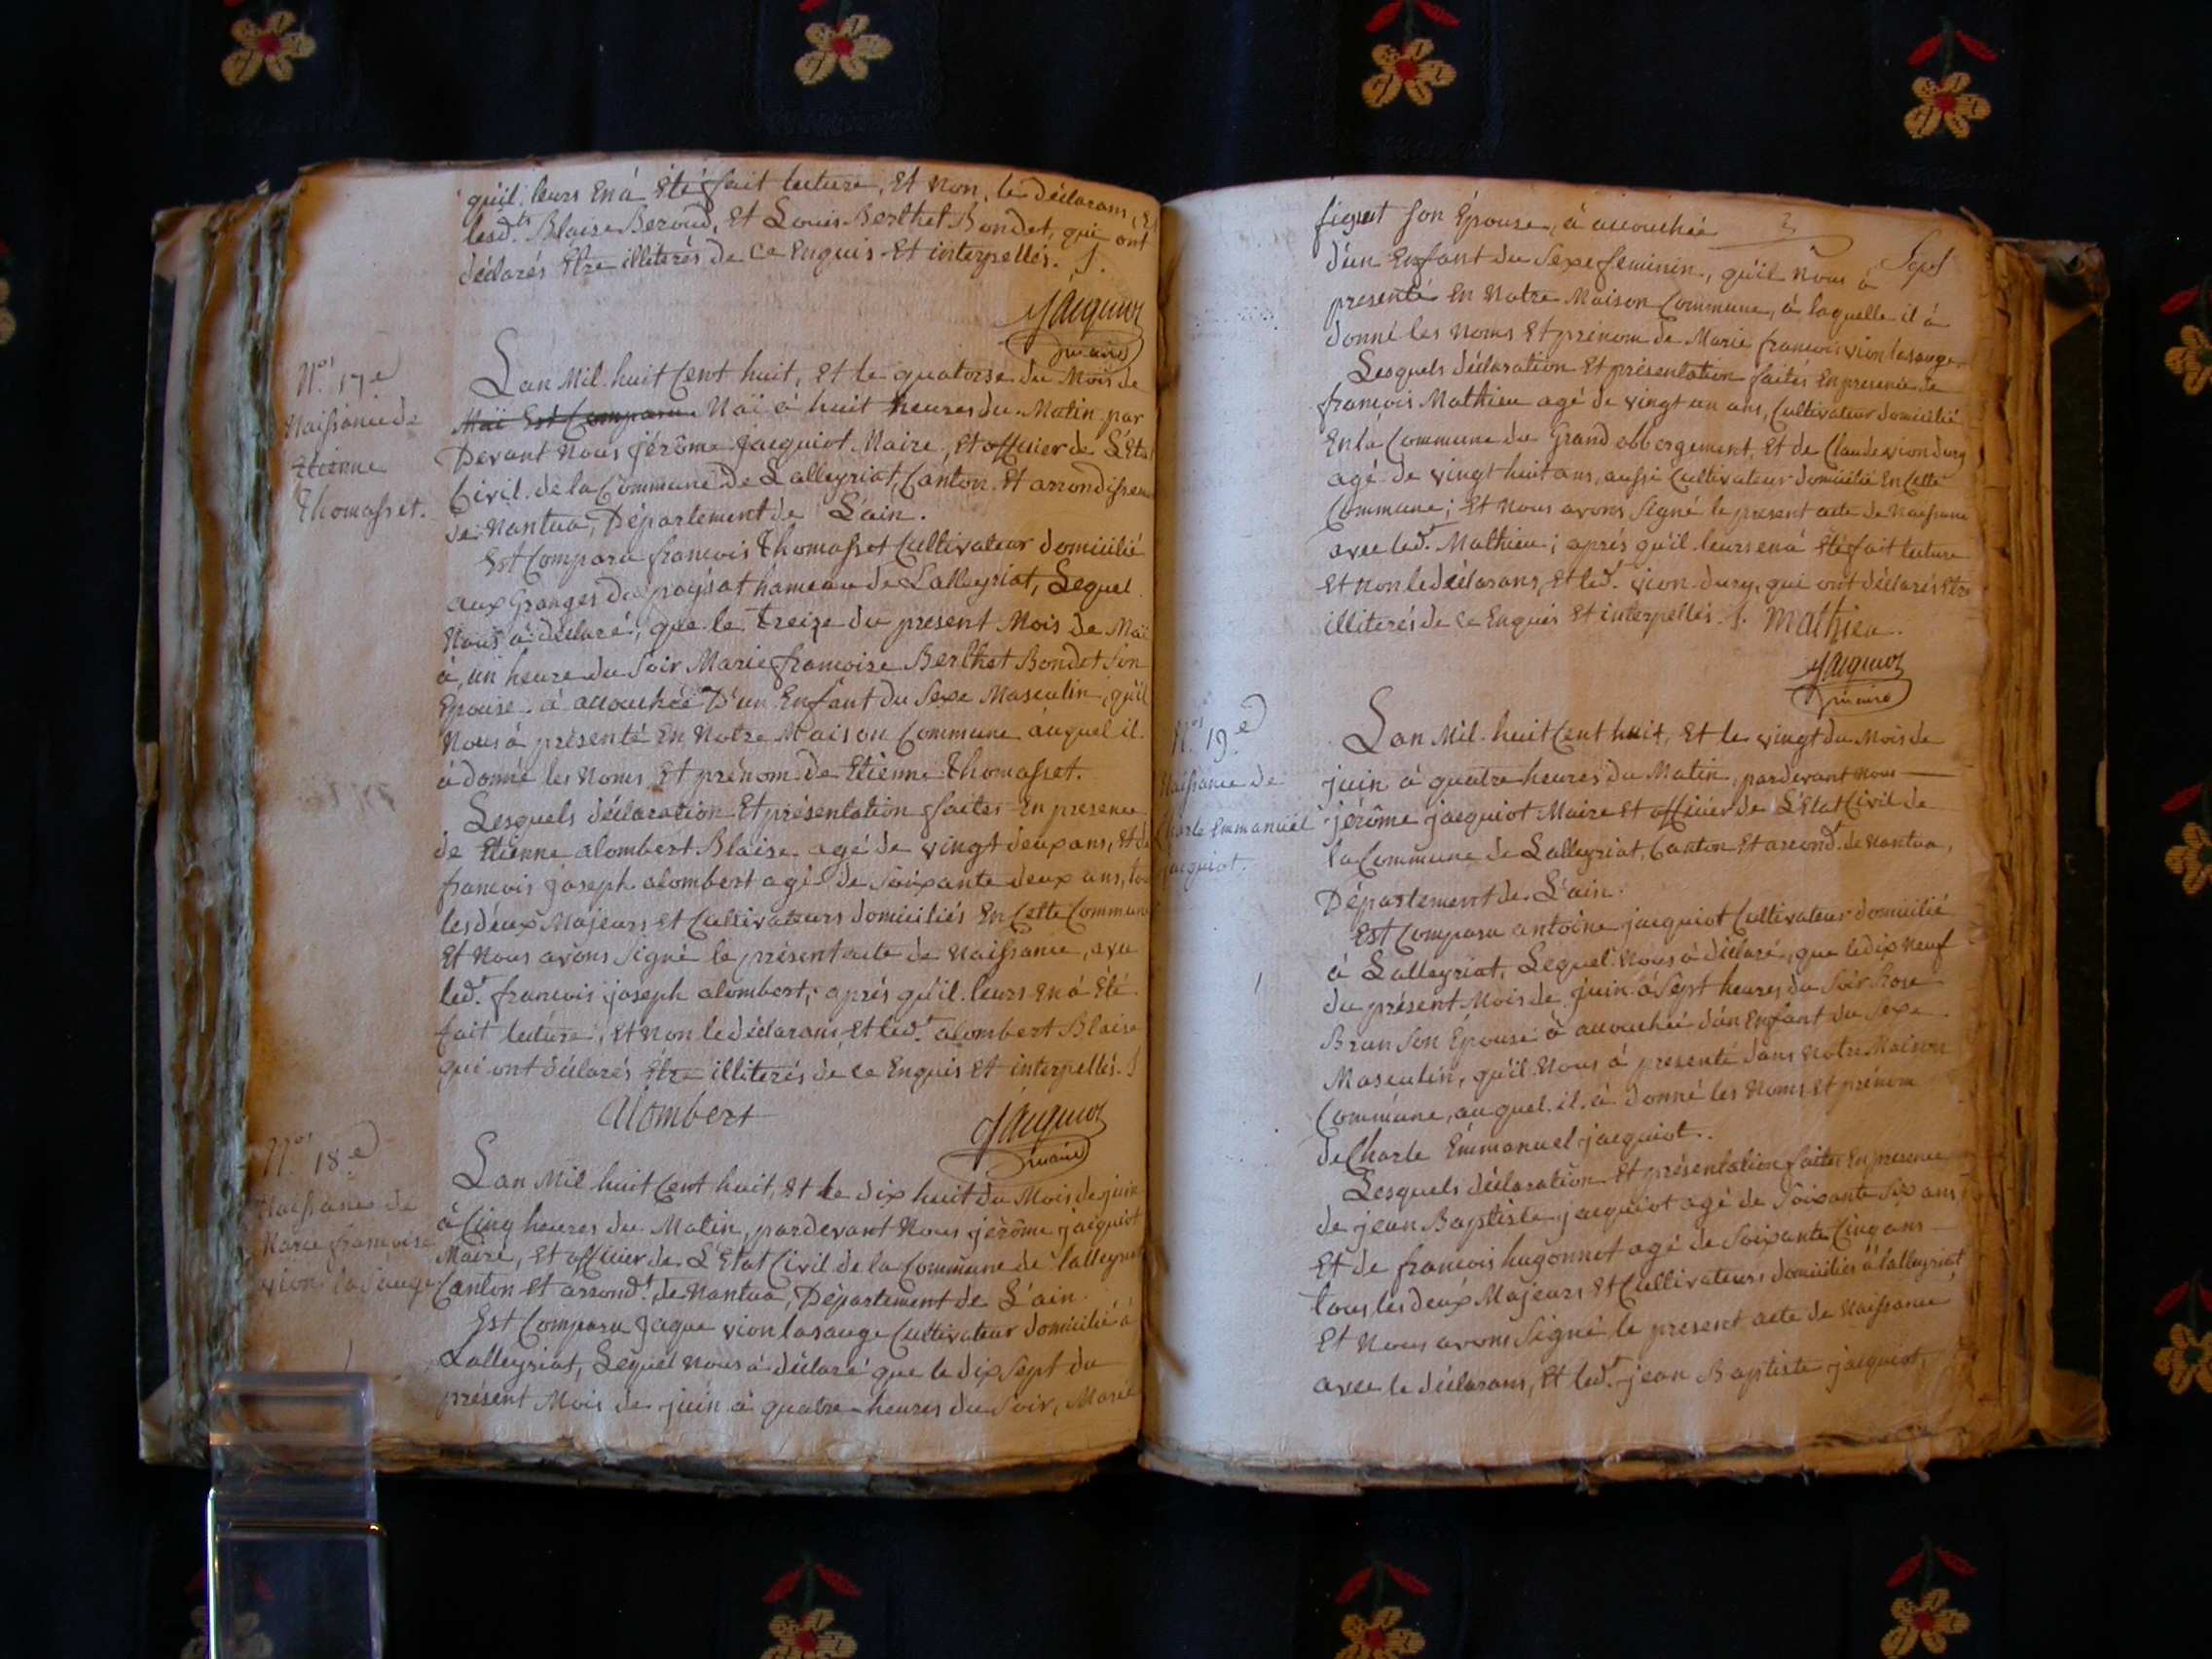 qu'il leurs En á Eté fait lecture, Et Non, le déclarans, Et
lesd.ts Blaise Beroud, Et Louis Berthet Bondet, qui ont
déclarés Etre illiterés de Ce Enquis Et interpellés. J.
Jacquiot
maire
N.os 17.e
Naissance de
Etienne
Thomasset.
Lan Mil huit Cent huit, Et le quatorse du Mois de
Maï Est Comparu Maï á huit heures du Matin par
Devant Nous jérôme Jacquiot Maire, Et officier de L'Etat
Civil de la Commune de Lalleyriat, Canton Et arrondissement
de Nantua, Département de L'ain.
Est Comparu francois Thomasset Cultivateur domicilié
aux Granges Du poysat hameau de Lalleyriat, Lequel
Nous á déclaré, que le treize du present Mois de Maï
á un heure du Soir Marie francoise Berthet Bondet Son
Epouse á accouchée D'un Enfant du Sexe Masculin, qu'il
Nous á présenté En Notre Maison Commune auquel il
á donné les Noms Et prénom de Etienne Thomasset.
Lesquels déclaration Et présentation faites En presence
de Etienne alombert Blaise agé de vingt deux ans, Et de
francois joseph alombert agé de Soixante deux ans, tous
les deux Majeurs Et Cultivateurs domiciliés En Cette Commune
Et Nous avons Signé le présent acte de Naissance, avec
led.t francois joseph alombert, aprés qu'il leurs en á Eté
fait lecture, Et Non le déclarans Et led.t alombert Blaise
qui ont déclarés Etre illiterés de ce Enquis Et interpellés. J
Alombert
Jacquiot
maire
N.os 18.e
Naissance de
Marie francoise
vion lasauge
Lan Mil huit Cent huit, Et le dix huit du Mois de juin
á Cinq heures du Matin pardevant Nous jérôme jacquiot
Maire, Et officier de L'Etat Civil de la Commune de Lalleyriat
Canton Et arrond.t de Nantua, Département de L'ain.
Est Comparu Jaque vion lasauge Cultivateur domicilié á
Lalleyriat, Lequel Nous á déclaré que le dix Sept du
présent Mois de juin á quatre heures du Soir, Marie
figuet Son Épouse, á accouchée
Sept
d'un Enfant du Sexe feminin, qu'il Nous á
presenté En Notre Maison Commune, á laquelle il á
donné les Noms Et prénom de Marie francoise vion lasauge
Lesquels déclaration Et présentation faites En presence de
françois Mathieu agé de vingt un ans, Cultivateur domicilié
En la Commune du Grand abbergement, Et de Claude vion dury
agé de vingt huit ans, aussi Cultivateur domicilié En Cette
Commune; Et Nous avons Signé le present acte de Naissance
avec led.t Mathieu; aprés qu'il leurs en á Eté fait lecture
Et Non le déclarans, Et led.t vion dury, qui ont déclarés Etre
illiterés de Ce Enquis Et interpellés. J. Mathieu.
Jacquiot
maire
N.os 19.e
Naissance de
Charle Emmanuël
jacquiot.
Lan Mil huit Cent huit, Et le vingt du Mois de
juin á quatre heures du Matin, pardevant Nous
jérôme jacquiot Maire Et officier de L'Etat Civil de
la Commune de Lalleyriat, Canton Et arrond.t de Nantua,
Département de L'ain.
Est Comparu antoine jacquiot Cultivateur domicilié
á Lalleyriat, Lequel Nous á déclaré, que le dix Neuf
du présent Mois de juin á Sept heures du Soir Rose
Brun Son Épouse á accouchée d'un Enfant du Sexe
Masculin, qu'il Nous á presenté dans Notre Maison
Commune, auquel il á donné les Noms Et prénom
de Charle Emmanuel jacquiot.
Lesquels déclaration Et présentation faites En presence
de jean Baptiste jacquiot agé de Soixante Six ans,
Et de francois hugonnet agé de Soixante Cinq ans
tous les deux Majeurs Et Cultivateurs domiciliés á Lalleyriat
Et Nous avons Signé le present acte de Naissance
avec le déclarans, Et led.t jean Baptiste jacquiot,